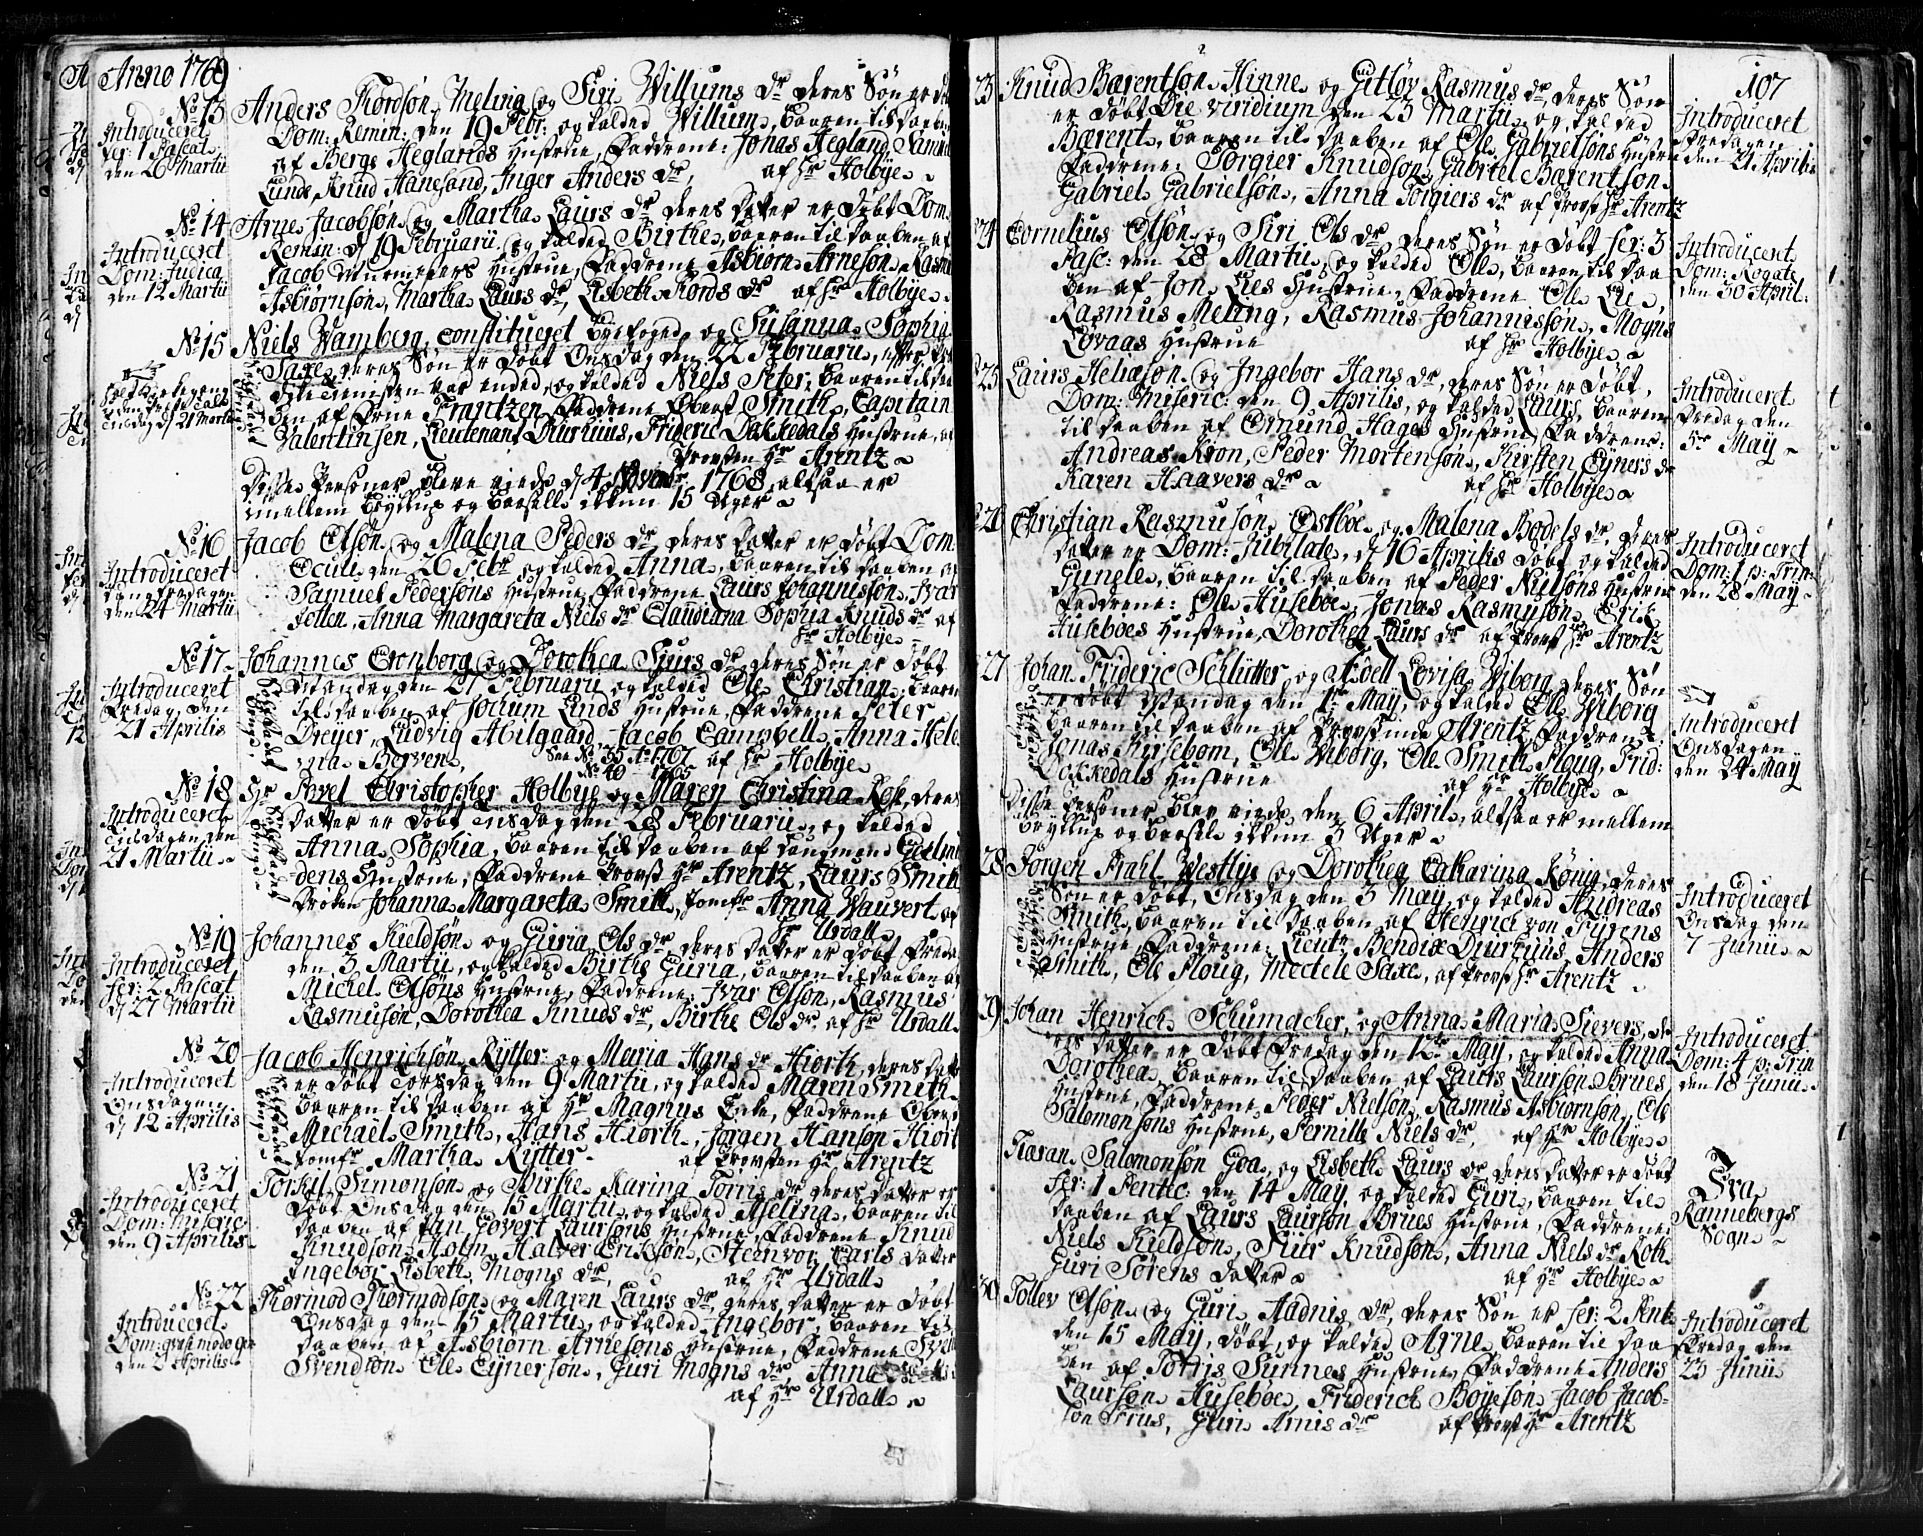 Anno 1769
No 13
Introduceret
fer: 1 Pascat.
den 26 Martii
Anders Tiordsøn Meling og Siri Willums dr deres Søn er
Dom: Remin: den 19 Febr: og kalded Willum, baaren til daaben
af Berge Heglands Hustrue, Faddrene: Jonas Hegland, Samuel
Lunde, Knud Hanesand, Inger Anders dr, af Hr Holbye
No 14
Introduceret
Dom: Judica
den 12 Martii
Arne Jacobsøn og Martha Laurs dr deres datter er døbt Dom.
Remin: d 19 Februarii og kalded Birthe, baaren til daaben af
Jacob Hustrue, Faddrene Asbiørn Arnesøn, Rasmus
Asbiørnsøn, Martha Laurs dr, Lisbeth Tiords dr af Hr Holbye
No 15
Tisdag d 21 Martii
Niels Wamberg, constitueret Byefoged og Susanna Sophia
Saxe, deres Søn er døbt Onsdag den 22 Februarii, efter
var ended, og kalded Niels Peter, baaren til daa
ben af Frantzen, Faddrene Oberst Smith, Capitain
Valentinsen, Lieutenant Durhuus, Frideric Dakkedals Hustrue, af
Provsten Hr Arentz
Disse Personer bleve viede d 4 Novembr 1768, altsaa er
mellem Bryllup og Barsell ikkun 15 Uger
No 16
Introduceret
den 24 Martii
Jacob Olsøn og Malena Peders dr deres datter er døbt Dom.
Oculi den 26 Febr og kalded Anna, baaren til daaben af
Samuel Pedersøns Hustrue, Faddrene Laurs Johannissøn, Ivar
Jotten, Anna Margareta Niels dr Claudiana Sophia Knuds dr af
Hr Holbye
No 17
Introduceret
Fredag den
21 Aprilis
Johannes Cronborg og Dorothea Siurs dr, deres Søn er døbt
Mandag den 27 Februarii og kalded Ole Christian, baaren
til daaben af Jochum Lunds Hustrue, Faddrene Peter
Dreyer, Ludvig Abilgaard, Jacob Campbell, Anna Hele
na Berven, See No 35 Ao 1767 af Hr Holbye
No 40 1765
No 18
Introduceret
Tisdagen den
21 Martii
Hr Povel Christopher Holbye og Maren Christina Rosse, deres
Datter er døbt Tisdag den 28 Februarii, og kalded
Anna Sophia, baaren til daaben af Geelmu
dens Hustrue, Faddrene Provst Hr Arentz, Laurs Smith
Frøken Johanna Margareta Smith, Jomfr Anna Wauvert, af
Hr Urdall
No 19
Introduceret
fer: 2 Pascat
d 27 Martii
Johannes Kieldsøn og Guria Ols dr deres datter er døbt Fredag
den 3 Martii, og kalded Birthe Guria, baaren til daaben af
Michel Olsøns Hustrue, Faddrene: Ivar Olsøn, Rasmus
Rasmussøn, Dorothea Knuds dr, Birthe Ols dr, af Hr Urdall
No 20
Introduceret
Onsdagen
d 12 Aprilis
Jacob Henrichsøn Rytter og Maria Hans dr Hiorth, deres datter
er døbt Torsdag den 9 Martii, og kalded Maren Smith
baaren til daaben af Hr Magnus Eele, Faddrene Oberst
Michael Smith, Hans Hiorth, Jørgen Hansøn Hiort
Jomfr Martha Rytter af Provsten Hr Arentz
No 21
Introduceret
Dom: Miseric:
den 9 Aprilis
Torkil Simonsøn og Birthe Karina Torris dr deres datter er
døbt Onsdag den 15 Martii, og kalded Aselina, baaren til
daaben af Jan Govert Laursøns Hustrue, Faddrene Knud
Knudsøn Holm, Halver Erichsøn, Steinvor Carls datter
Ingebor Lisbeth Mogns dr, af Hr Urdall
No 22
Introduceret
Dom: qvasimodogen
den 2 Aprilis
Thormod Thormodsøn og Maren Laurs dr, deres datter er døbt
Onsdag den 15 Martii, og kalded Ingebor, baaren til
daaben af Asbiørn Arnesøns Hustrue, Faddrene Svend
Svendsøn Ole Eynersøn, Guri Mogns dr, Anna
af Hr Urdall
107
23
Knud Bærentsøn Hinne og Gitløv Rasmus dr, deres Søn
er døbt Die viridium den 23 Martii, og kalded
Bærent, baaren til daaben af Ole Gabrielsøns Hustrue
Faddrene: Torgier Knudsøn, Gabriel Barentsøn
Gabriel Gabrielsøn, Anna Torgiers dr af Provst Hr Arentz
Introduceret
Fredagen
den 21 Aprilis
24
Cornelius Olsøn og Siri Ols dr, deres Søn er døbt fer: 3
Pasc: den 28 Martii, og kalded Ole, baaren til daa
ben af Jon Lies Hustrue, Faddrene Ole Lie,
Rasmus Meling, Rasmus Johannissøn, Mogns
Løvaas Hustrue af Hr Holbye
Introduceret
Dom: Rogate
den 30 April:
25
Laurs Heliasøn og Ingebor Hans dr, deres Søn er døbt
Dom: Miseric: den 9 Aprilis, og kalded Laurs, baaren
til daaben af Omund Hages Hustrue, Faddrene:
Andreas Kron, Peder Mortensøn, Kirsten Eyners dr
Karen Haavers dr af Hr Holbye
Introduceret
Fredag den
5te May
26
Christian Rasmusøn Østbøe og Malena Bodels dr, deres
datter er Dom: Jubilate, d 16 Aprilis døbt og kalded
Gunele, baaren til daaben af Peder Nielsøns Hustrue
Faddrene: Ole Husebøe, Jonas Rasmusøn, Erik
Husebøes Hustrue, Dorothea Laurs dr af Provst Hr Arentz
Introduceret
Dom: 1 p: Trin:
den 28 May
27
Johan Frideric Schlutter og Adell Lovisa Wiborg deres Søn
er døbt Mandag den 1te May, og kalded Ole Wiborg
baaren til daaben af Provstinde Arentz, Faddrene:
Jonas Kirsebom, Ole Wiborg, Ole Smith Ploug, Frid:
Dakkedals Hustrue af Hr Holbye
Disse Personer blev viede den 6 April, altsaa er mellem
Bryllup og Barsell ikkun 3 Uger
Introduceret
Onsdagen
den 24 May
28
Jørgen Prahl Westlye og Dorothea Catharina Kønig, deres
Søn er døbt, Onsdag den 3 May, og kalded Andreas
Smith, baaren til daaben af Henrich von Fyrens
Hustrue, Faddrene: Lieutn Bendix Durhuus, Anders
Smith, Ole Ploug, Mectele Saxe, af Provst Hr Arentz
Introduceret
Onsdag den
7 Junii
29
Johan Henrich Schumacher, og Anna Maria Sievers, de
res datter er døbt Fredag den 12te May, og kalded Anna
Dorothea, baaren til daaben af Laurs Laursøn Brues
Hustrue, Faddrene, Peder Nielsøn, Rasmus Asbiørnsøn, Ole
Salomonsøns Hustrue, Pernille Niels dr, af Hr Holbye
Introduceret
Dom: 4 p: Trin
den 18 Junii
Haran Salomonsøn Goa, og Lisbeth Laurs dr deres datter er døbt
fer: 1 Pentec: den 14 May og kalded Guri, baaren til
daaben af Laurs Laursøn Brues Hustrue, Faddrene,
Niels Kieldsøn, Siur Knudsøn, Anna Niels dr Roth
Guri Sørens datter af Hr Holbye
Fra
Rannebergs
Sogn
30
Tollev Olsøn og Guri Aadnis dr, deres Søn er fer: 2 Pent:
den 15 May, døbt, og kalded Arne, baaren til daa
ben af Torris Sunnes Hustrue, Faddrene Anders
Laursøn Husebøe, Friderich Boyesøn, Jacob Jacob-
søn Trius, Guri Arnis dr af Provst Hr Arentz
Introduceret
Fredag den
23 Junii